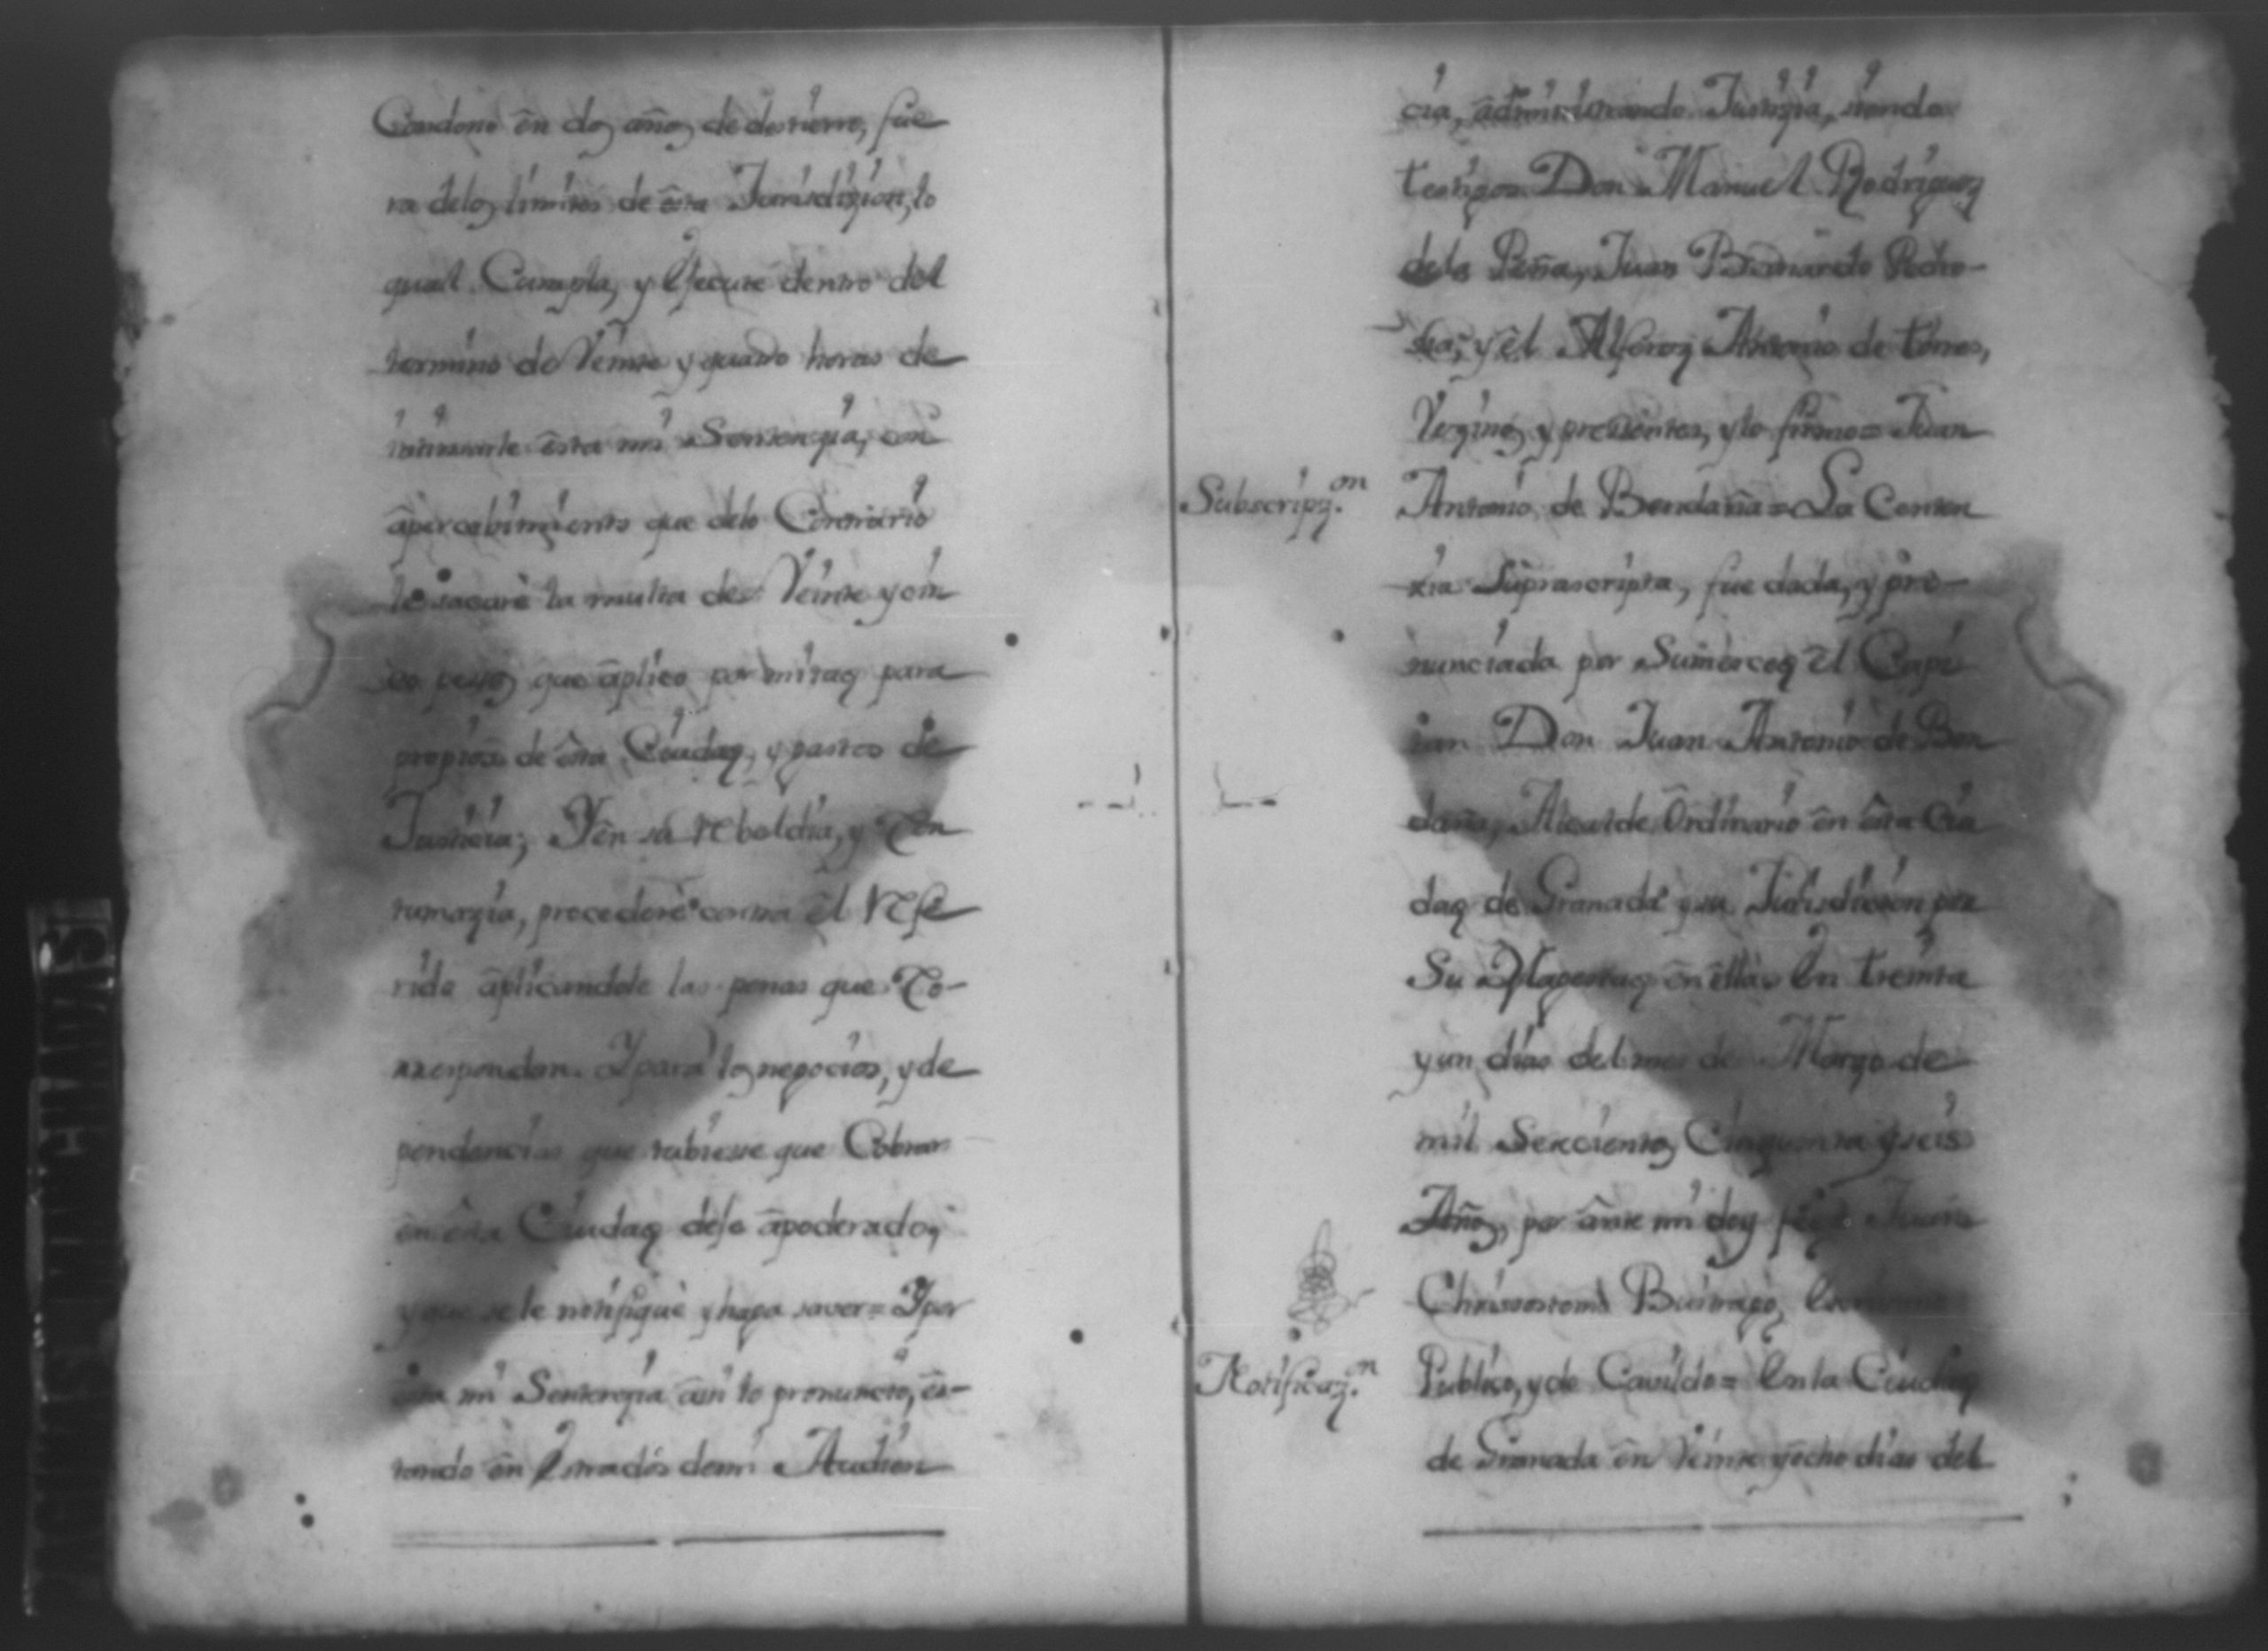 Condono ên dos años de destierro, fue
ra delos limites de êsta Jurisdizion, lo
qual Cumpla, y êfecute dentro del
termino de Veinte y quatro horas de
intimarle êsta mi Sentenzia, con
âpercebimiento que delo Contrario
le sacarè la multa de Veinte y cin
co pesos que âplico por mitaz para
propios de êsta Ciudaz, y gastos de
Justicia; Y ên su rebeldia, y Con
tumazia, procederè contra êl refe
rido âplicandole las penas que Co-
rrespondan. Y para los negocios, y de
pendencias que tubiese que Cobrar
ên êsta Ciudaz dese âpoderado,
y que se le notifique y haga saver = Y por
êsta mi Sentenzia âsi lo pronuncio, ês-
tando ên Estrados demi Audien
cia, âdministrando Justizia, siendo
testigos Don Manuel Rodriguez
dela Peña, Juan Bernardo Pedro-
sa, y êl Alferez Antonio de torres,
Vezinos y presentes, y lo firmo = Juan
Subscripz.on
Antonio de Bendaña = La Senten
zia Suprascripta, fue dada, y pro-
nunciada por Sumercez êl Capi
tan Don Juan Antonio de Ben
daña, Alcalde Ordinario ên êsta Ciu
daz de Granada y su Jurisdicion por
Su Magestaz ên êlla. En treinta
y un dias del mes de Marzo de
mil Setecientos Cinquenta y seis
Años, por ânte mi doy fee = Juan
Chrisostomo Buitrago, Escrivano
Notificaz.n
Publico, y de Cavildo = En la Ciudaz
de Granada ên Veinte y ocho dias del